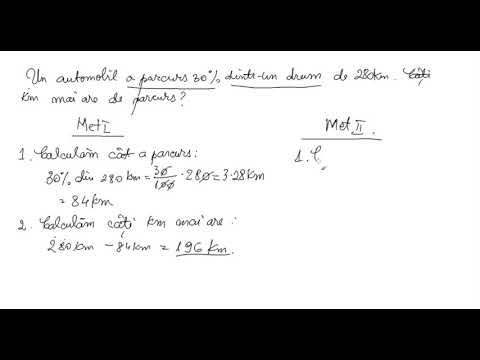 Un automobil a parcurs 30% dintr-un drum de 280km. Câți
km mai are de parcurs?
Met I
Met II.
1. Calculăm cât a parcurs:
1. C
30% din 280 km = 30/100 · 280 = 3·28km
= 84km
2. Calculăm câți km mai are:
280km - 84km = 196 km.